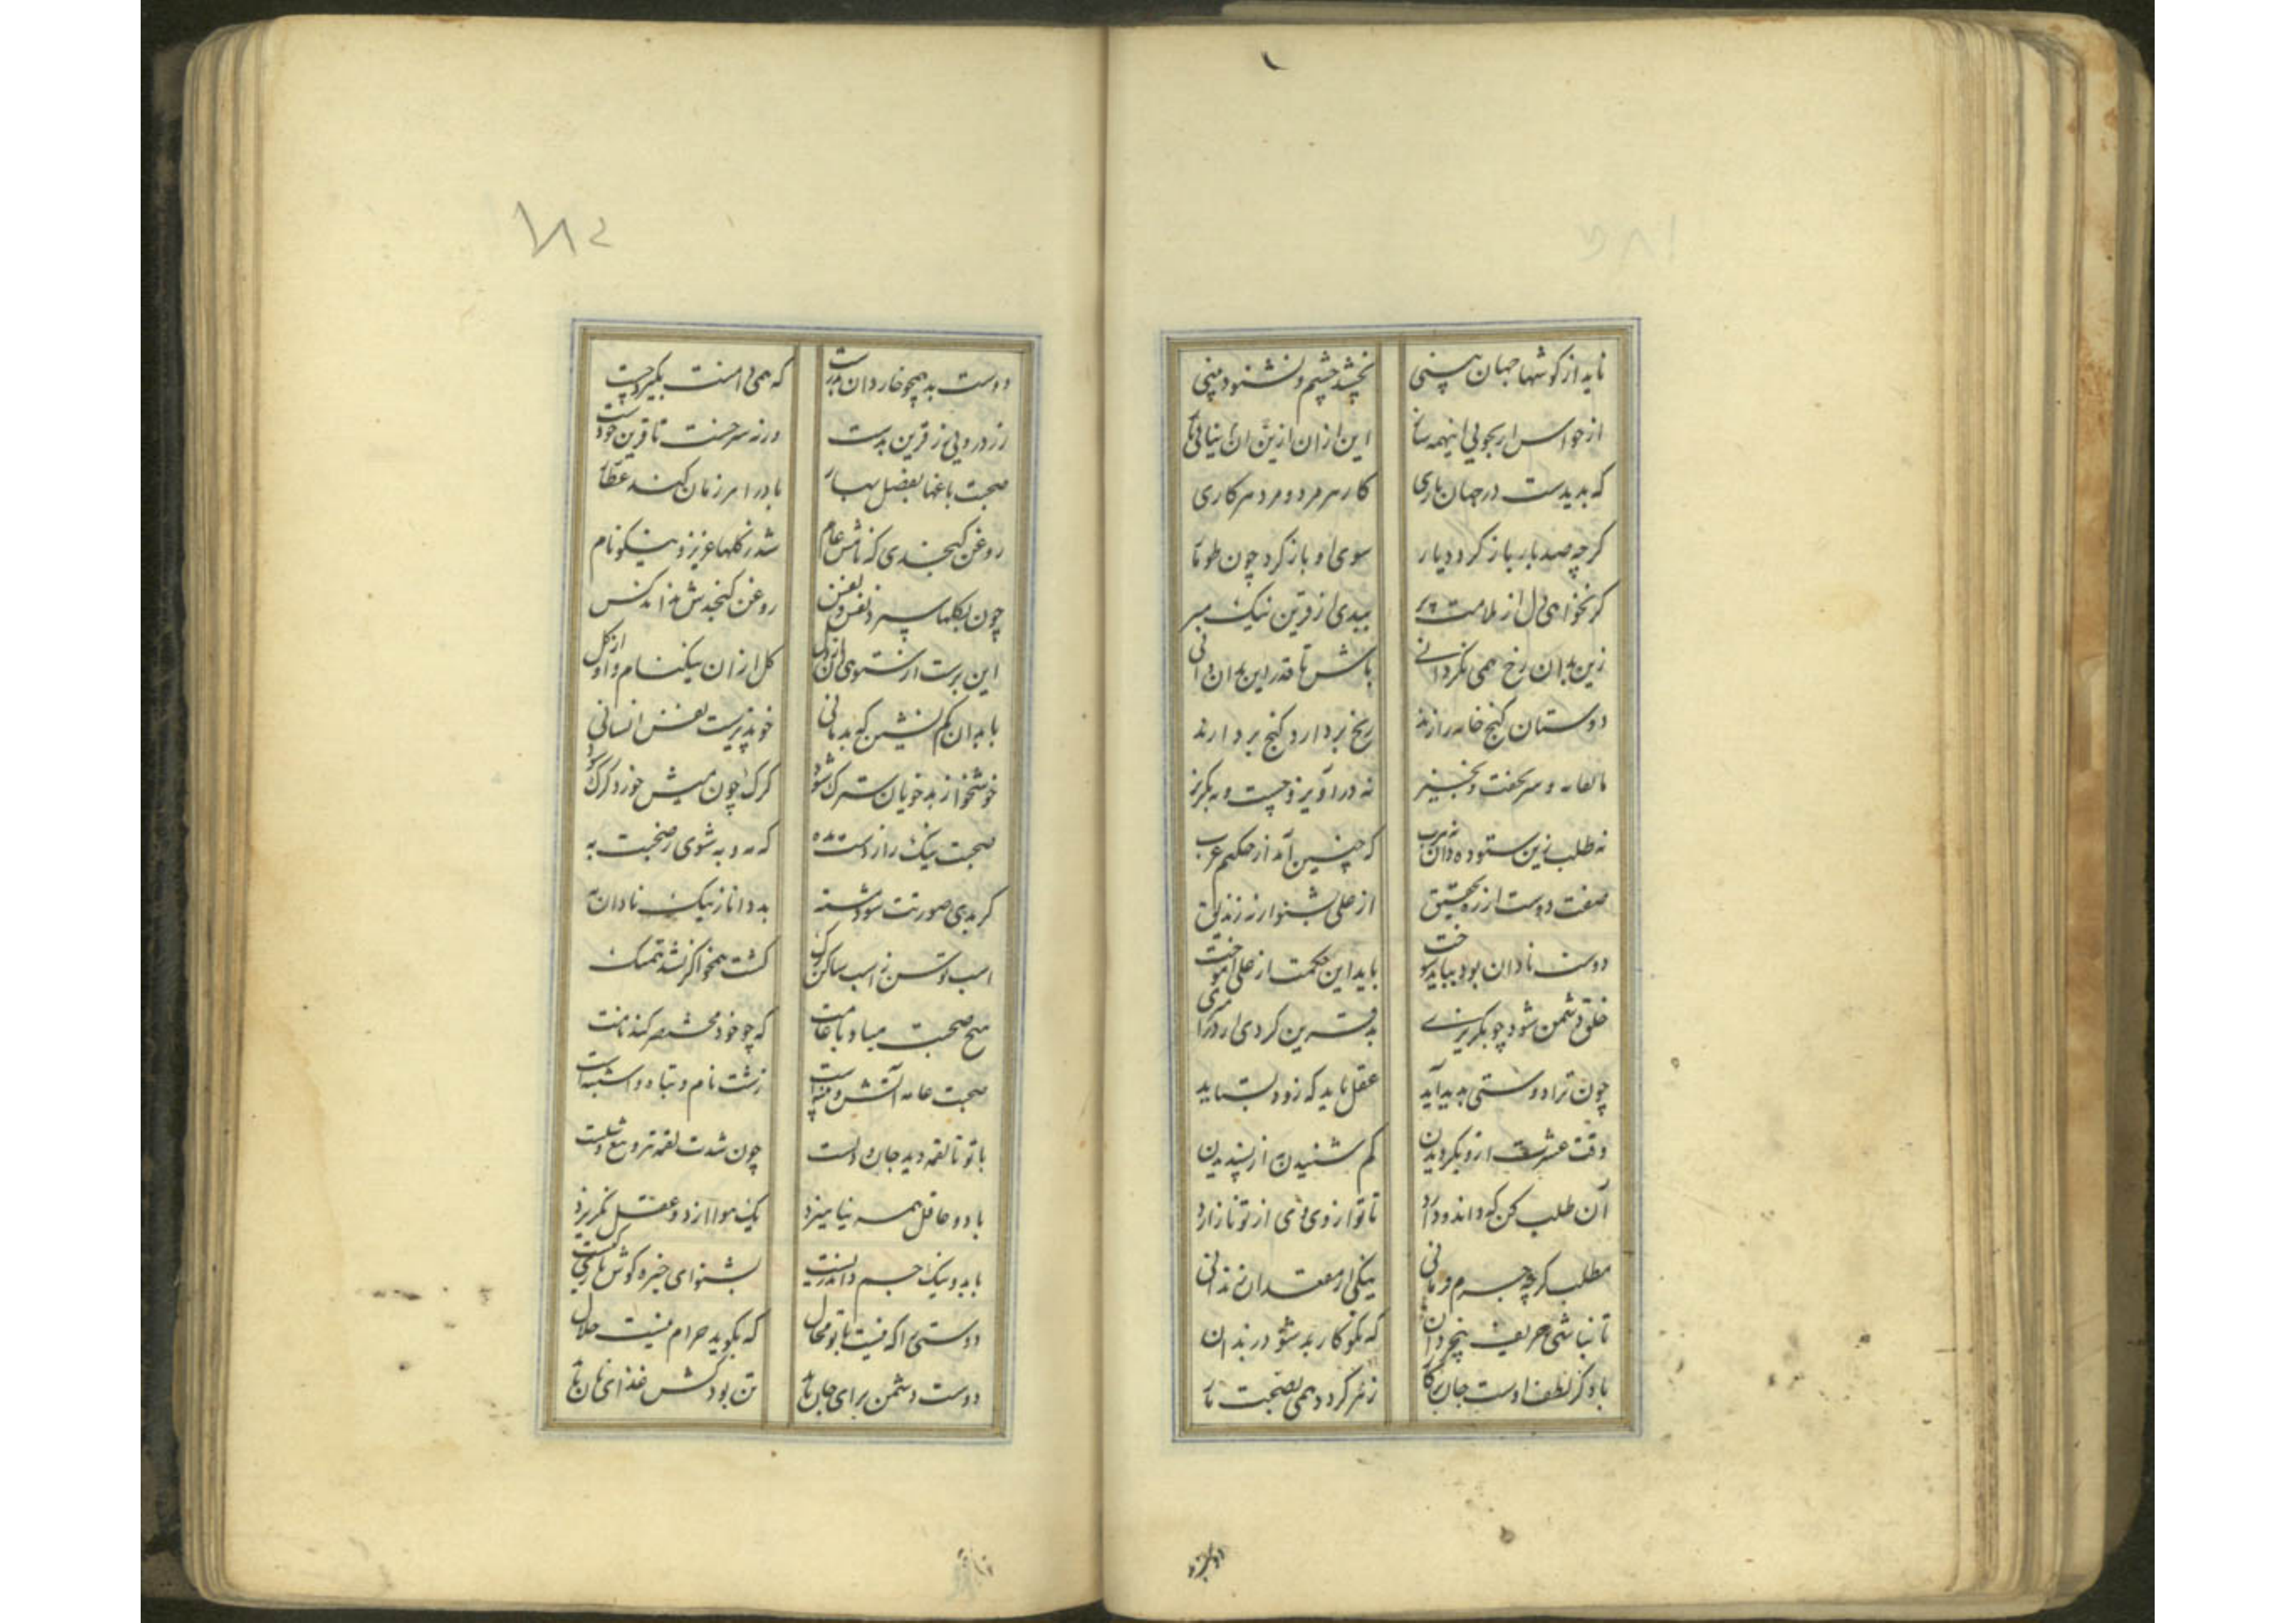 ناید از گوشها جهان بینی نچشد چشم و نشنود بینی
از حواس ار بجویی اینهمه ساز این از ان از این ان نیابی باز
که بدیدست در جهان باری کار هر مرد و مرد هر کاری
گرچه صد بار باز گردد یار سوی او باز گرد چون طومار
گر نخواهی دل از ملامت پر ببدی از قرین نیک مبر
زین بدان رخ همی نگردانی باش تا قدر این بدان دانی
دوستان گنج خانه رازند رنج بردارد گنج بردارند
با و سر بخفت و بخیز نه درآویز و چست و نه بگریز
نه طلب زین ستوده دان نه هرب که چنین آمد از حکیم عرب
صفت دوست از ره تحقیق از علی بشنو ار نه زندیق
دوست نادان بود بباید سوخت باید این حکمت از علی آموخت
خلق دشمن شود چو بگریزی بد قرین گردی ار درآمیزی
چون ترا دوستی پدید آید عقل باید که زود بستاید
وقت عشرت ازو بگردیدن کم شنیدن از پسندیدن
آن طلب کن که داند و دارد تا تو از وی و وی از تو نازارد
مطلب گرچه جرم درمانی نیکی از معتقدان ندانی
تا نباشی حریف بیخردان که نکو کار بد شود ز بدان
باد کز لطف اوست جان بر کار زهر گردد همی بصحبت مار
دوزرد
۱۸۲
دوست بد همچو خار دان بدرست که همی دامنت بگیرد چست
زرد رویی ز قرین بدست ورنه سرخست تا قرین خودست
صحبت باغها بفصل بهار باد را هر زمان کند عطار
روغن کنجدی که نامش عام شد ز گلها عزیز و نیکو نام
چون بگلها سپرد نفس و نفس روغن کنجدش نداند کس
این برست از ستوی آن از دل گل از ان نیکنام و او از گل
با بدان کم نشین که بد مانی خو پذیرست نفس انسانی
خوشخو از بد خویان سترگ شود گرگ چون میش خورد گرگ شود
صحبت نیک را ز دست مده که مه و به شوی ز صحبت به
گر بدی صورتت شود بد دانا ز نیک نادان به
اسب توسن ز اسب ساکن رگ گشت همخو اگر نشد همتگ
هیچ صحبت مباد با عامت که چو خود مختصر کند نامت
صحبت عامه آتش و پنبه است زشت نام و تباه و استنبه است
با تو تا لقمه دید جان و دلست چون شدت لقمه نزد
با دو عاقل همه نیامیزد یک هوا از دو عقل نگریزد
با بد و نیک جرم در است بشنو ای خیره گوش
دوستی را که نیست با تو محال که بگوید حرام نیست حلال
دوست دشمن برای جان باشد تن بود کش غذای نان باشد